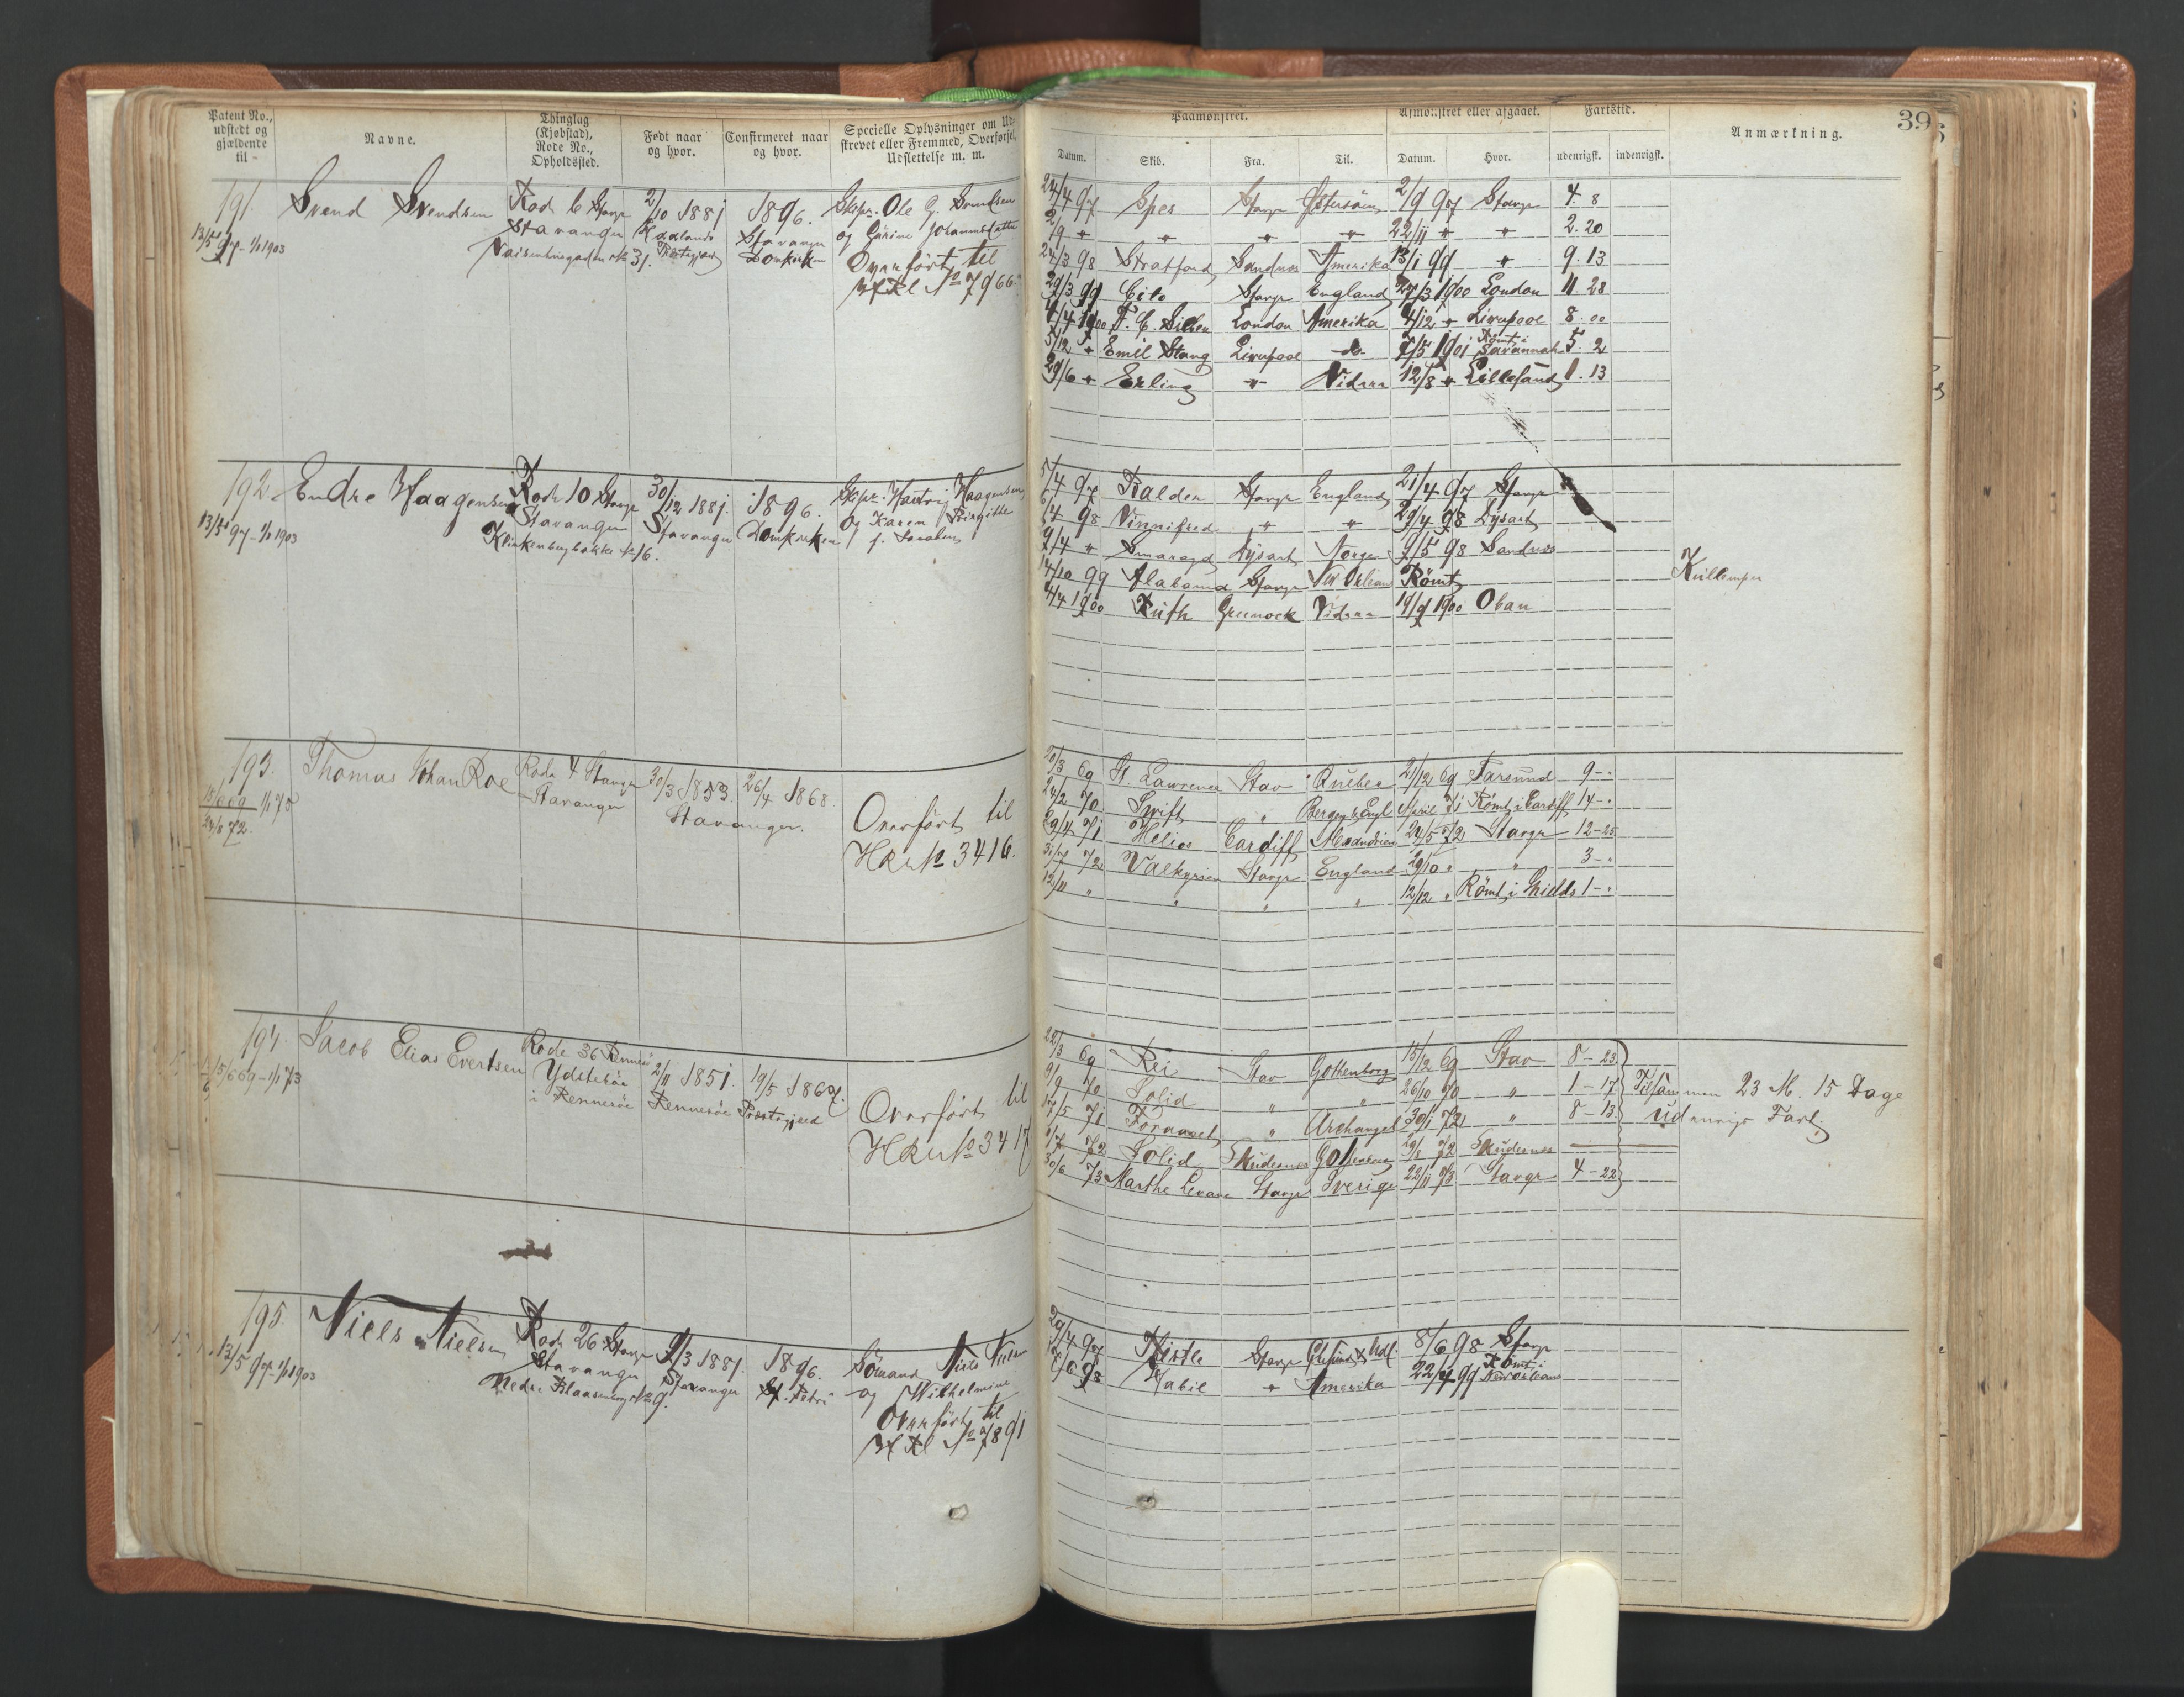 Patent No., udstedt og gjældende til -
Navne.
Thinglag (Kjøbstad), Rode No., Opholdssted.
Født naar og hvor.
Confirmeret naar og hvor.
Specielle Oplysninger om Udskrevet eller Fremmed, Overførsel, Udslettelse m. m.
Paamønstret.
Afmønstret eller afgaaet.
Fartstid.
Anmærkning.
39
Datum.
Skib.
Fra.
Til.
Datum.
Hvor.
udenrigsk.
indenrigsk.
191.
13/5 97 - 1/1 1903
Svend Svendsen
Rode 6 Stavgr
Stavanger
No 31.
2/10 1881
1896.
Stavanger
Domkirken
Skipr. Ole G. Svendsen
og Gurine
Overført til
HRl No 7966
24/4 97 Spes Stavgr Østersøen 2/9 97 Stavgr 4. 8
2/9 " " " " 22/11 " " 2. 20
24/3 98 Stratford Sandnes Amerika 13/1 99 " 9. 13
29/3 99 Cito Stavgr England 27/3 1900 London 11. 28
4/4 1900 London Amerika 4/12 " Liverpool 8. 00
5/12 " Emil Stang Liverpool do 7/5 1901 Rømt i Savannah 5. 2
29/6 " Erling " Videre 12/8 " Lillesand 1. 13
192.
13/5 97 - 1/1 1903
Endre Haagensen
Rode 10 Stavgr
Stavanger
Klinkenbergbakke No 16.
30/12 1881.
Stavanger
1896.
Domkirken
Skipr. Hartvig Haagensen
og Karen Birgitte
f. Jacobsen
5/4 97 Balder Stavgr England 21/4 97 Stavgr
6/4 98 Vinnifred " " 29/4 98 Dysart
9/4 " Smaragd Dysart Norge 9/5 98 Sandnes
14/10 99 Alabama Stavgr New Orleans Rømt
4/4 1900 Ruth Greenock Videre 19/9 1900 Oban
193.
15/6 69 - 1/1 75
24/8 72.
Thomas Johan Roe
Rode 4 Stavgr
Stavanger
30/3 1853.
26/4 1868.
Stavanger.
Overført til
HRl No 3416.
20/3 69 St. Lawrence Stav Quebec 21/12 69 Farsund 9 - "
24/2 70 Swift " Bergen & Engl April 71 Rømt i Cardiff 14 - "
29/4 71 Helios Cardiff Alexandrien 24/5 72 Stavgr 12 - 25
31/7 72 Valkyrien Stavgr England 29/10 " " 3 - "
12/11 " " " " 12/12 " Rømt i Shields 1 - "
194.
15/6 69 - 1/1 73
Jacob Elias Evertsen
Rode 36 Rennesøe
Ydstebøe
i Rennesøe
2/11 1851.
Rennesøe
19/5 1867.
Præstegjeld
Overført til
HRl No 3417
22/3 69 Rei Stav Gothenborg 15/12 69 Stav 8 - 23.
9/9 70 Solid " " 26/10 70 " 1 - 17
17/5 71 Foraaret " Archangel 30/1 72 " 8 - 13.
72 Solid Skudesnes Gothenborg 72 Skudesnes
30/6 73 Marthe Levare Stavgr Sverige 22/11 73 Stavgr 4 - 22
Tilsammen 23 M. 15 Dage
udenrigs Fart.
195.
13/5 97 - 1/1 1903
Niels Nielsen
Rode 26 Stavgr
Stavanger
Nedre Blaasenborg No 9.
9/3 1881.
Stavanger
1896.
St. Petri
Sømand Niels Nielsen
og Wilhelmine
Overført til
HRl No 7891
29/4 97 Thistle Stavgr 8/6 98 Stavgr
98 Habil " Amerika 22/4 99 Rømt i New Orleans